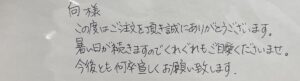 向 様
この度はご注文を頂き誠にありがとうございます。
暑い日が続きますのでくれぐれもご自愛くださいませ。
今後とも何卒宜しくお願い致します.